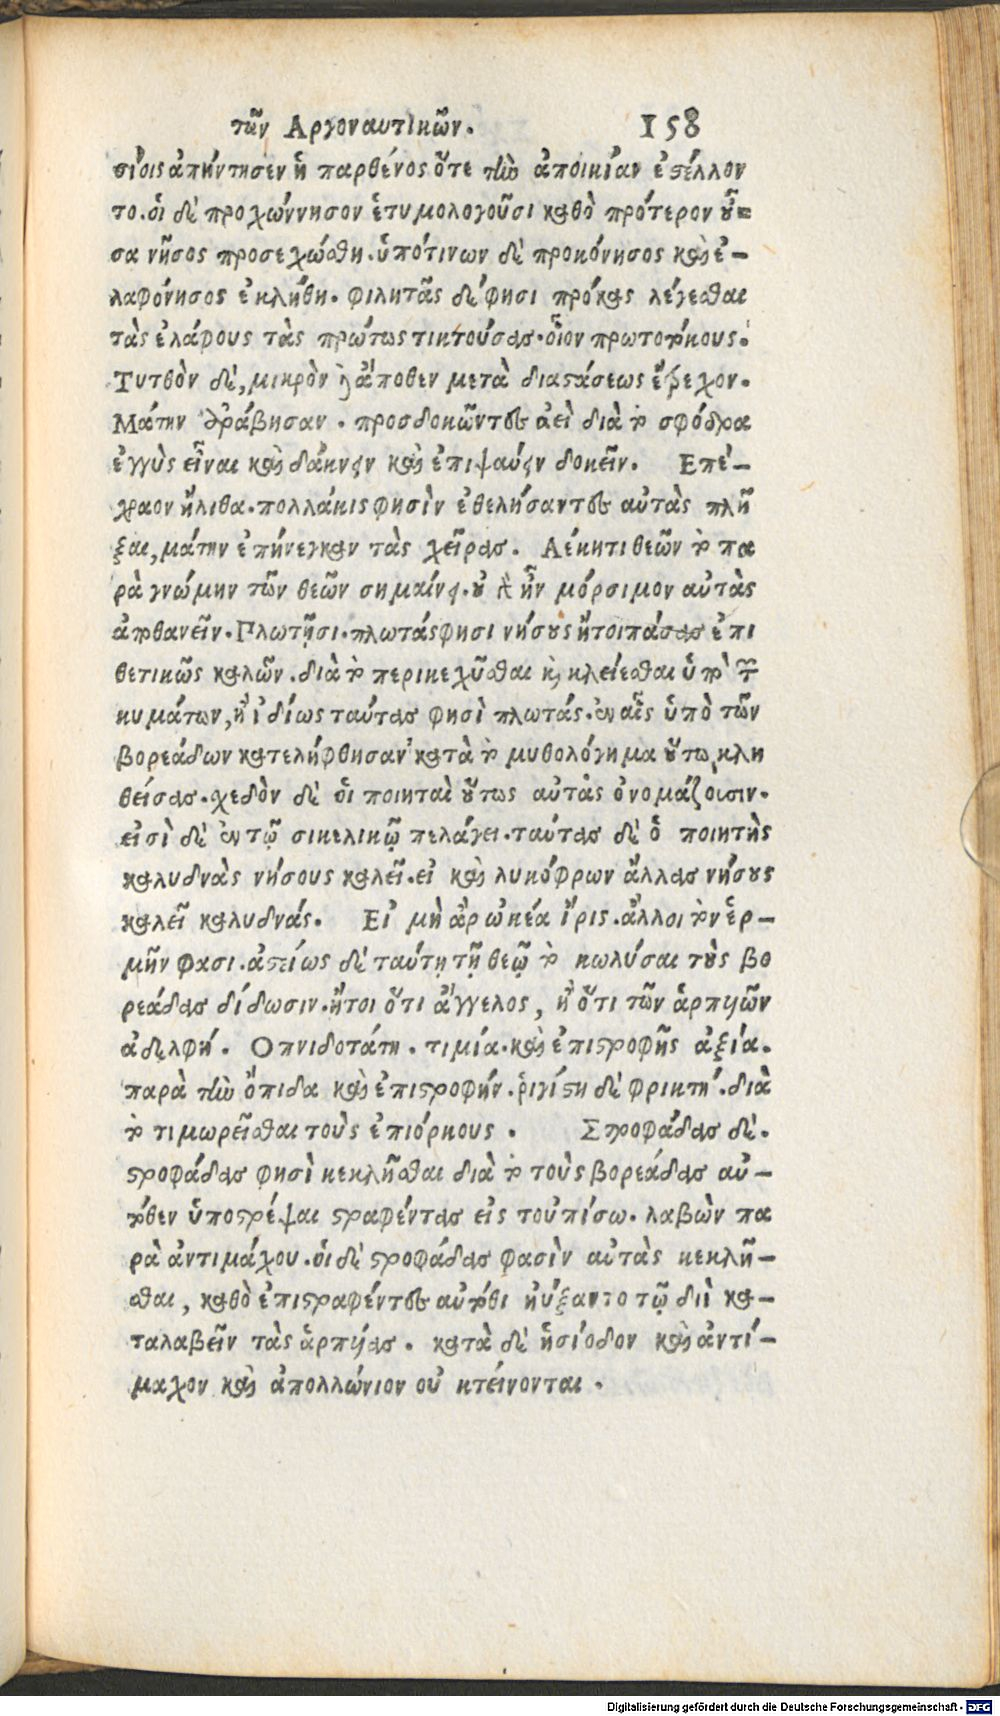 τῶν Αργοναυτικῶν. 158
σίοις ἀπήντησεν ἡ παρθένος ὅτε τὴν ἀποικίαν ἐστέλλον
το. οἱ δὲ προχώννησον ἐτυμολογοῦσι καθὸ πρότερον οὖ=
σα νῆσος προσεχώσθη. ὑπότινων δὲ προκόνησος καὶ ἐ-
λαφόνησος ἐκλήθη. φιλητᾶς δέ φησι πρόκας λέγεσθαι
τὰς ἐλάφους τὰς πρώτως τικτούσας. οἷον πρωτοτόκους.
Τυτθὸν δέ, μικρὸν ἢ ἄποθεν μετὰ διαστάσεως ἔτρεχον.
Μάτην ἀράβησαν. προσδοκῶντες ἀεὶ διὰ τὸ σφόδρα
ἐγγὺς εἶναι καὶ δάκνειν καὶ ἐπιψαύειν δοκεῖν. Επέ-
χραον ἤλιθα. πολλάκις φησὶν ἐθελήσαντες αὐτὰς πλῆ
ξαι, μάτην ἐπήνεγκαν τὰς χεῖρας. Αέκητι θεῶν τὸ πα
ρὰ γνώμην τῶν θεῶν σημαίνει. οὐ γὰρ ἦν μόρσιμον αὐτὰς
ἀποθανεῖν. Πλωτῇσι. πλωτάς φησι νήσους ἤτοι πάσας ἐπι
θετικῶς καλῶν. διὰ τὸ περικεχῦσθαι καὶ κλείεσθαι ὑπὸ τῶν
κυμάτων, ἢ ἰδίως ταύτας φησὶ πλωτάς. ἐν αἷς ὑπὸ τῶν
βορεάδων κατελήφθησαν κατὰ τὸ μυθολόγημα οὕτω κλη
θείσας. χεδὸν δὲ οἱ ποιηταὶ οὕτως αὐτὰς ὀνομάζουσιν.
εἰσὶ δὲ ἐν τῷ σικελικῷ πελάγει. ταύτας δὲ ὁ ποιητὴς
καλυδνὰς νήσους καλεῖ. εἰ καὶ λυκόφρων ἄλλας νήσους
καλεῖ καλυδνάς. Εἰ μὴ ἄρ ὠκέα ἶρις. ἄλλοι τὸν ἑρ-
μῆν φασι. ἀστείως δὲ ταύτῃ τῇ θεῷ τὸ κωλύσαι τοὺς βο
ρεάδας δίδωσιν. ἤτοι ὅτι ἄγγελος, ἢ ὅτι τῶν ἁρπυιῶν
ἀδελφή. Οπιδοτάτη. τιμία. καὶ ἐπιστροφῆς ἀξία.
παρὰ τὴν ὄπιδα καὶ ἐπιστροφήν. ῥιγίστη δὲ φρικτή. διὰ
τὸ τιμωρεῖσθαι τοὺς ἐπιόρκους. Στροφάδας δέ.
στροφάδας φησὶ κεκλῆσθαι διὰ τὸ τοὺς βορεάδας αὐ-
τόθεν ὑποστρέψαι στραφέντας εἰς τοὐπίσω. λαβὼν πα
ρὰ ἀντιμάχου. οἱ δὲ στροφάδας φασὶν αὐτὰς κεκλῆ-
σθαι, καθὸ ἐπιστραφέντες αὐτόθι ηὔξαντο τῷ διὶ κα-
ταλαβεῖν τὰς ἁρπυίας. κατὰ δὲ ἡσίοδον καὶ ἀντί-
μαχον καὶ ἀπολλώνιον οὐ κτείνονται.
Digitalisierung gefördert durch die Deutsche Forschungsgemeinschaft - DFG